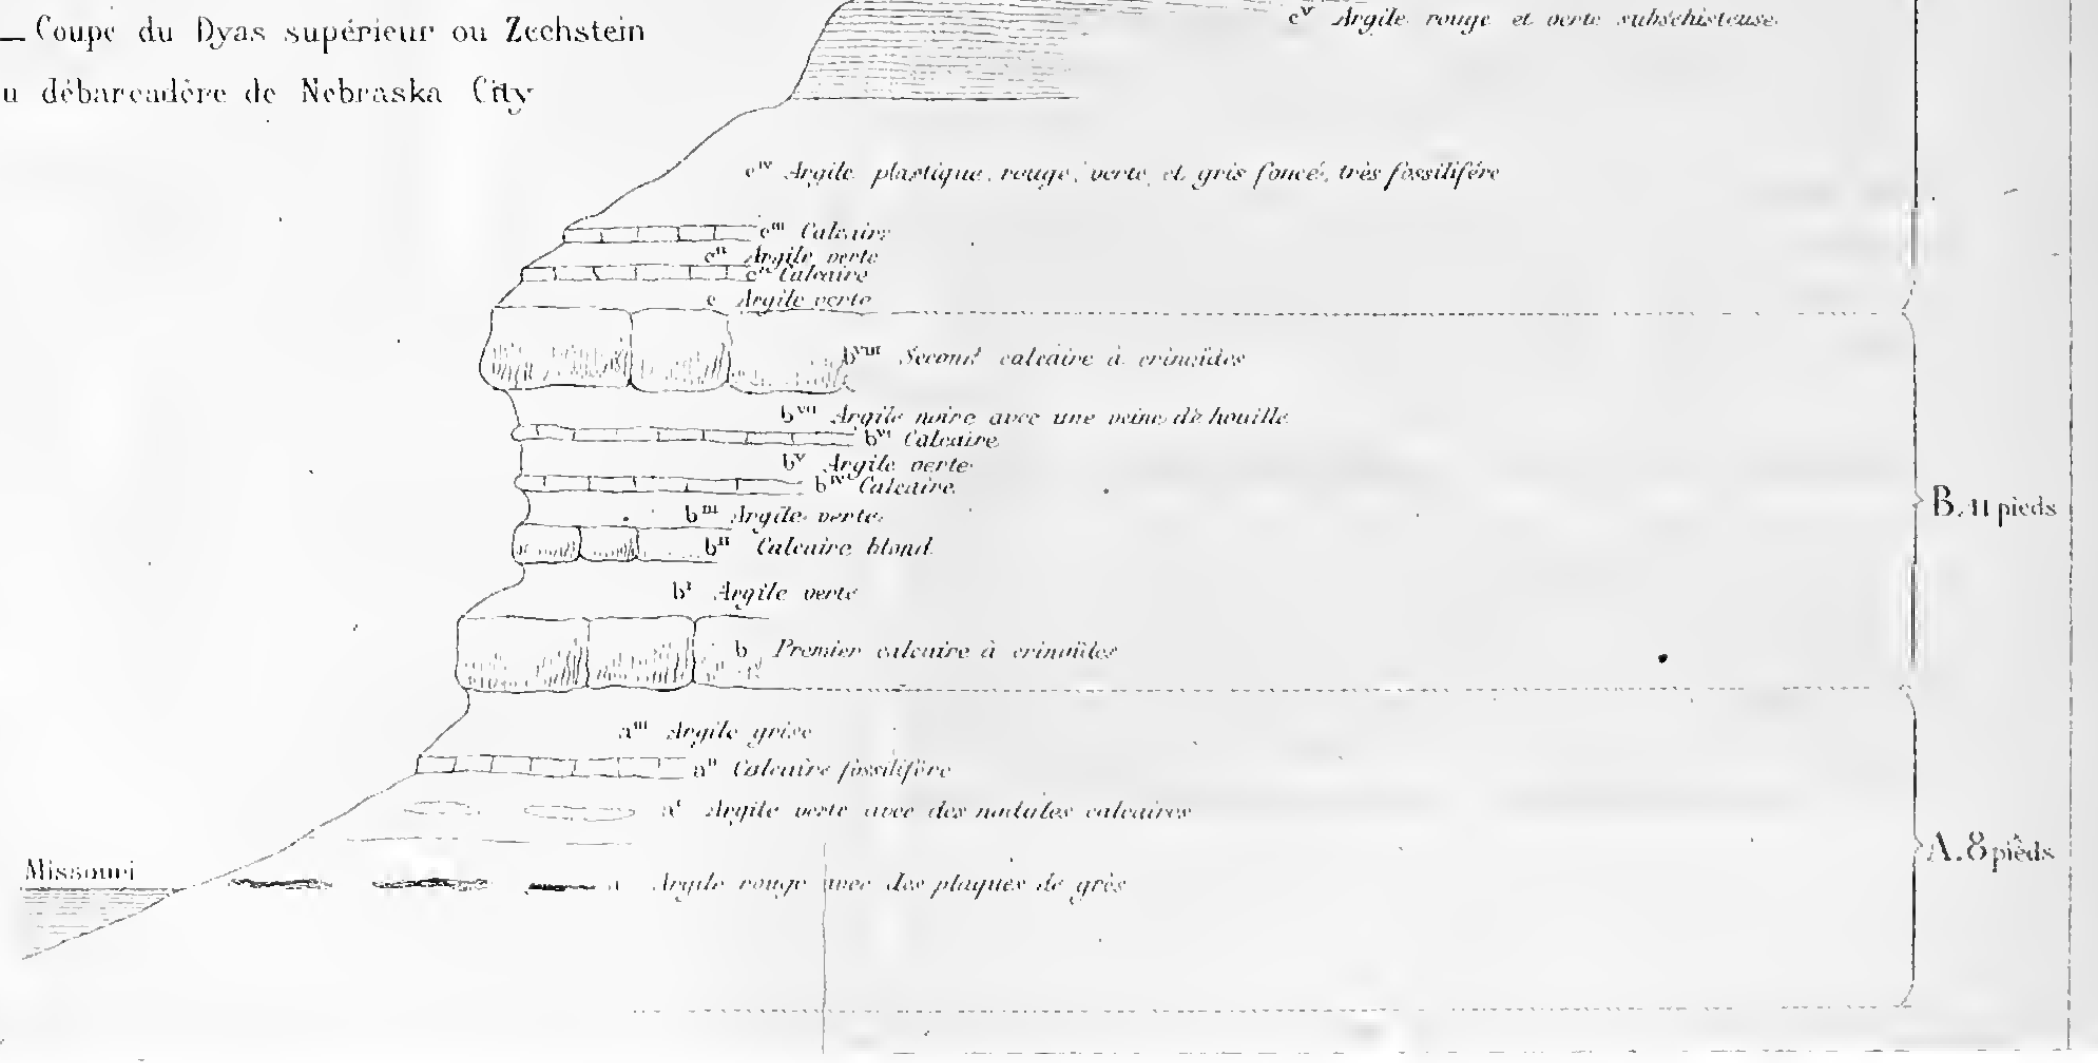 — Coupe du Dyas supérieur ou Zechstein
u débarcadère de Nebraska City
cᵛ Argile rouge et verte subschisteuse
cᴵⱽ Argile plastique, rouge, verte, et gris foncé, très fossilifère
cᴵᴵᴵ Calcaire
cᴵᴵ Argile verte
cᴵ Calcaire
c Argile verte
bⱽᴵᴵᴵ Second calcaire à crinoïdes
bⱽᴵᴵ Argile noire avec une veine de houille
bⱽᴵ Calcaire
bⱽ Argile verte
bᴵⱽ Calcaire
B. 11 pieds
bᴵᴵᴵ Argile verte
bᴵᴵ Calcaire blond
bᴵ Argile verte
b Premier calcaire à crinoïdes
aᴵᴵᴵ Argile grise
aᴵᴵ Calcaire fossilifère
aᴵ Argile verte avec des nodules calcaires
A. 8 pieds
Missouri
a Argile rouge avec des plaques de grès